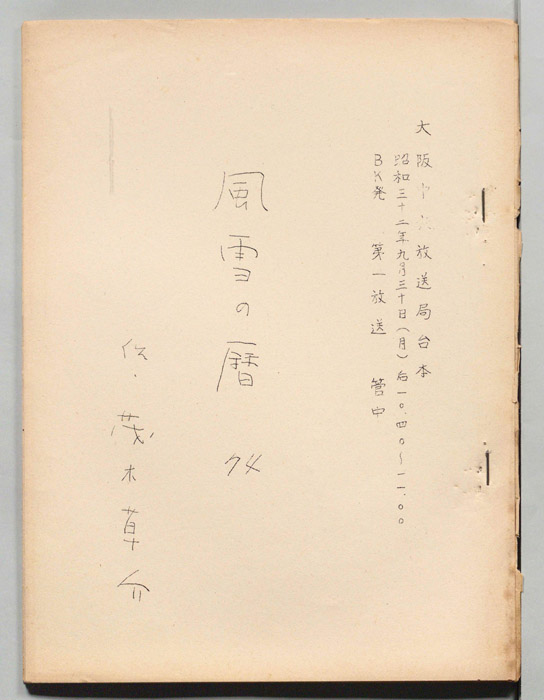 大阪中央放送局台本
昭和三十二年九月三十日(月)后一〇.四〇~一一.〇〇
BK発 第一放送 管中
風雪の暦
作・茂木草介